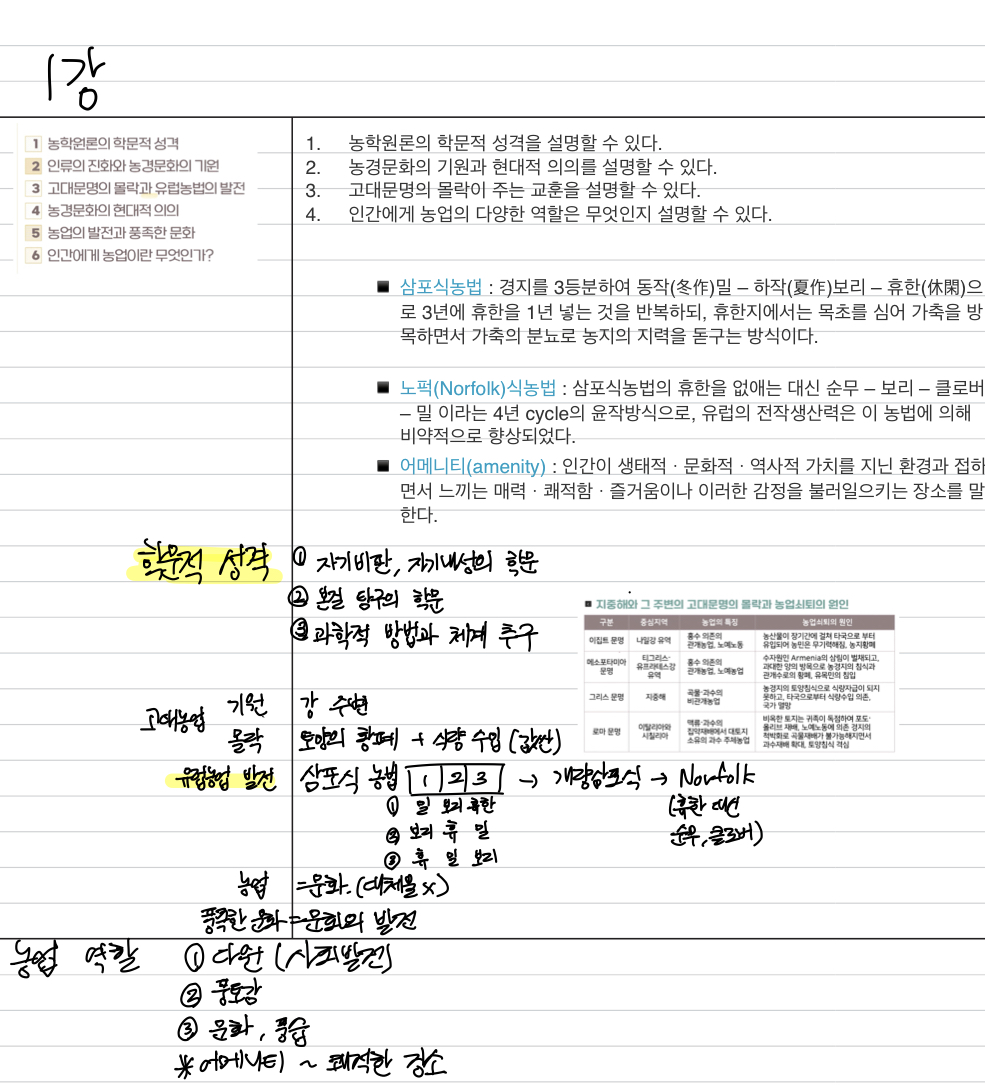 1강
1 농학원론의 학문적 성격
2 인류의 진화와 농경문화의 기원
3 고대문명의 몰락과 유럽농법의 발전
4 농경문화의 현대적 의의
5 농업의 발전과 풍족한 문화
6 인간에게 농업이란 무엇인가?
1. 농학원론의 학문적 성격을 설명할 수 있다.
2. 농경문화의 기원과 현대적 의의를 설명할 수 있다.
3. 고대문명의 몰락이 주는 교훈을 설명할 수 있다.
4. 인간에게 농업의 다양한 역할은 무엇인지 설명할 수 있다.
■ 삼포식농법 : 경지를 3등분하여 동작(冬作)밀 – 하작(夏作)보리 – 휴한(休閑)으
로 3년에 휴한을 1년 넣는 것을 반복하되, 휴한지에서는 목초를 심어 가축을 방
목하면서 가축의 분뇨로 농지의 지력을 돋구는 방식이다.
■ 노퍽(Norfolk)식농법 : 삼포식농법의 휴한을 없애는 대신 순무 – 보리 – 클로버
– 밀 이라는 4년 cycle의 윤작방식으로, 유럽의 전작생산력은 이 농법에 의해
비약적으로 향상되었다.
■ 어메니티(amenity) : 인간이 생태적 · 문화적 · 역사적 가치를 지닌 환경과 접하
면서 느끼는 매력 · 쾌적함 · 즐거움이나 이러한 감정을 불러일으키는 장소를 말
한다.
학문적 성격 ① 자기비판, 자기내성의 학문
② 본질 탐구의 학문
③ 과학적 방법과 체계 추구
■ 지중해와 그 주변의 고대문명의 몰락과 농업쇠퇴의 원인
구분 중심지역 농업의 특징 농업쇠퇴의 원인
이집트 문명 나일강 유역 홍수 의존의 관개농업, 노예노동 농산물이 장기간에 걸쳐 타국으로 부터 유입되어 농민은 무기력해짐, 농지황폐
메소포타미아 문명 티그리스·유프라테스강 유역 홍수 의존의 관개농업, 노예농업 수자원인 Armenia의 삼림이 벌채되고, 과대한 양의 방목으로 농경지의 침식과 관개수로의 황폐, 유목민의 침입
그리스 문명 지중해 곡물·과수의 비관개농업 농경지의 토양침식으로 식량자급이 되지 못하고, 타국으로부터 식량수입 의존, 국가 멸망
로마 문명 이탈리아와 시칠리아 맥류·과수의 집약재배에서 대토지 소유의 과수 주체농업 비옥한 토지는 귀족이 독점하여 포도·올리브 재배, 노예노동에 의존 경지의 척박화로 곡물재배가 불가능해지면서 과수재배 확대, 토양침식 격심
고대농업 기원 강 주변
몰락 토양의 황폐 + 식량 수입 (값싼)
유럽농업 발전 삼포식 농법 1 2 3 → 개량삼포식 → Norfolk
① 밀 보리 휴한
② 보리 휴 밀
③ 휴 밀 보리
(휴한 대신
순무, 클로버)
농업 =문화. (대체물 x)
풍족한 문화=문화의 발전
농업 역할 ① 다원 (사회발전)
② 풍토감
③ 문화, 풍급
※ 어메니티 ~ 쾌적한 장소